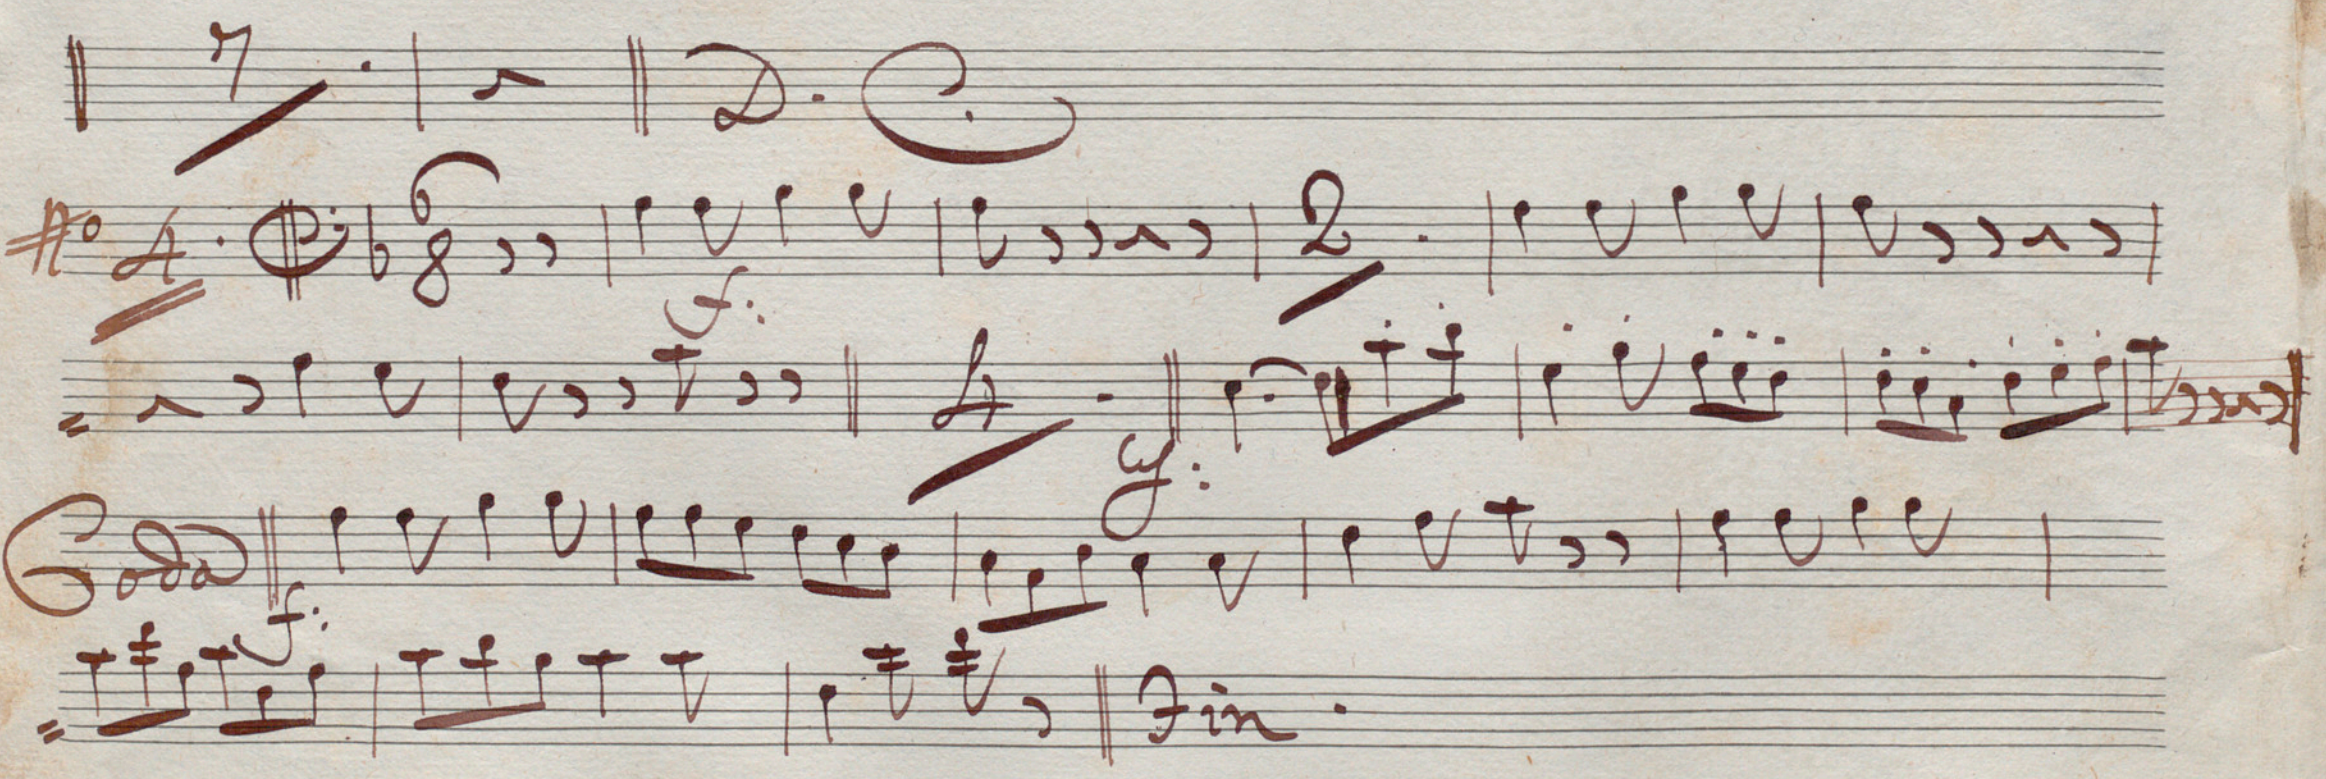 7. D. C.
No 4. 6 8 2.
f.
4.
Coda
f.
Fin.